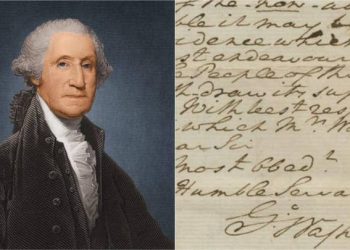 of the non-a
ble it may b
idence which
st endeavour
People of the
thdraw its sup
With best res
which Mr. Wa
ar Sir
most obed.t
Humble Serva
G.o Wash